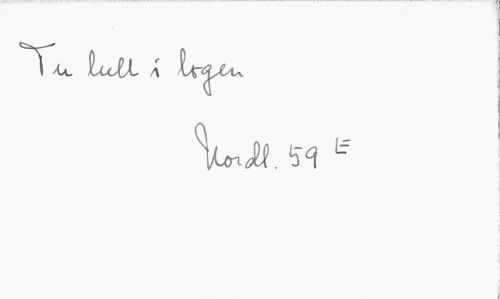 Tu lull i logen
Nordl. 59 E